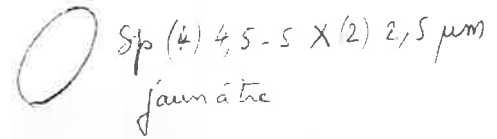 Sp (4) 4,5-5 X (2) 2,5 µm
jaunâtre